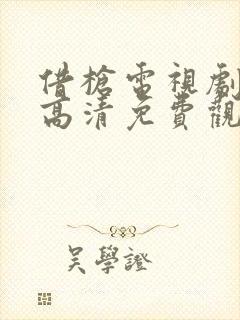 借槍電視劇
高清免費觀
吳學證